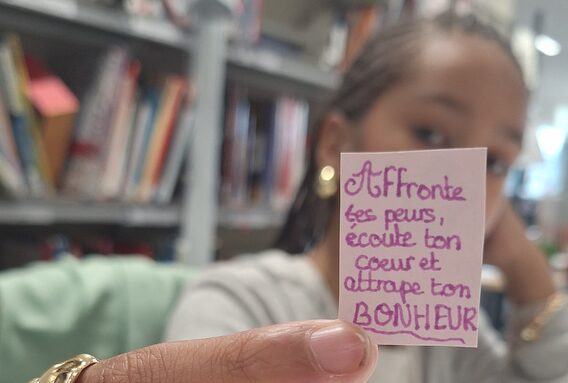 Affronte
tes peurs,
écoute ton
coeur et
attrape ton
BONHEUR